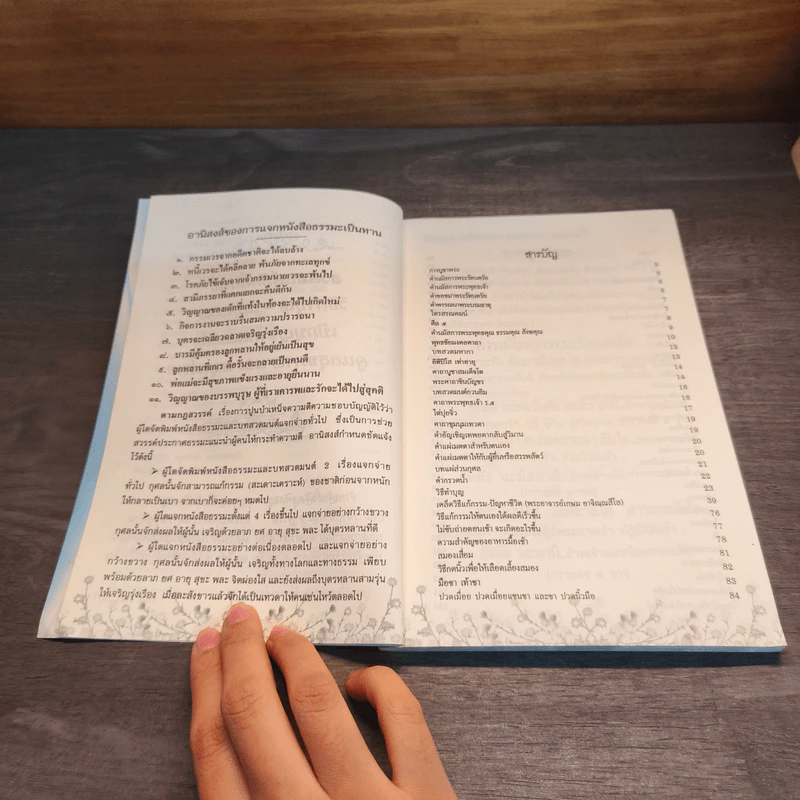 อานิสงส์ของการแจกหนังสือธรรมะเป็นทาน
๑. กรรมเวรจากอดีตชาติจะได้ลบล้าง
๒. หนี้เวรจะได้คลี่คลาย พ้นภัยจากทะเลทุกข์
๓. โรคภัยไข้เจ็บจากเจ้ากรรมนายเวรจะพ้นไป
๔. สามีภรรยาที่แตกแยกจะคืนดีกัน
๕. วิญญาณของเด็กที่แท้งในท้องจะได้ไปเกิดใหม่
๖. กิจการงานจะราบรื่นสมความปรารถนา
๗. บุตรจะเฉลียวฉลาดเจริญรุ่งเรือง
๘. บารมีคุ้มครองลูกหลานให้อยู่เย็นเป็นสุข
๙. ลูกหลานที่เกเร ดื้อรั้นจะกลายเป็นคนดี
๑๐. พ่อแม่จะมีสุขภาพแข็งแรงและอายุยืนนาน
๑๑. วิญญาณของบรรพบุรุษ ผู้ที่เราเคารพและรักจะได้ไปสู่สุคติ
ตามกฎสวรรค์ เรื่องการปูนบำเหน็จความดีความชอบบัญญัติไว้ว่า
ผู้ใดจัดพิมพ์หนังสือธรรมะและบทสวดมนต์แจกจ่ายทั่วไป ซึ่งเป็นการช่วย
สวรรค์ประกาศธรรมะแนะนำผู้คนให้กระทำความดี อานิสงส์กำหนดชัดแจ้ง
ไว้ดังนี้
➢ ผู้ใดจัดพิมพ์หนังสือธรรมะและบทสวดมนต์ 2 เรื่องแจกจ่าย
ทั่วไป กุศลนั้นจักสามารถแก้กรรม (สะเดาะเคราะห์) ของชาติก่อนจากหนัก
ให้กลายเป็นเบา จากเบาก็จะค่อยๆ หมดไป
➢ ผู้ใดแจกหนังสือธรรมะตั้งแต่ 4 เรื่องขึ้นไป แจกจ่ายอย่างกว้างขวาง
กุศลนั้นจักส่งผลให้ผู้นั้น เจริญด้วยลาภ ยศ อายุ สุขะ พละ ได้บุตรหลานที่ดี
➢ ผู้ใดแจกหนังสือธรรมะอย่างต่อเนื่องตลอดไป และแจกจ่ายอย่าง
กว้างขวาง กุศลนั้นจักส่งผลให้ผู้นั้น เจริญทั้งทางโลกและทางธรรม เพียบ
พร้อมด้วยลาภ ยศ อายุ สุขะ พละ จิตผ่องใส และยังส่งผลถึงบุตรหลานสามรุ่น
ให้เจริญรุ่งเรือง เมื่อละสังขารแล้วจักได้เป็นเทวดาให้คนเซ่นไหว้ตลอดไป
สารบัญ
การบูชาพระ 5
คำนมัสการพระรัตนตรัย
คำนมัสการพระพุทธเจ้า
คำขอขมาพระรัตนตรัย
คำพรรถนาพระบรมธาตุ
ไตรสรณคมน์ 7
ศีล ๕ 7
คำนมัสการพระพุทธคุณ ธรรมคุณ สังฆคุณ 8
พุทธชัยมงคลคาถา 9
บทสวดมหากา 10
อิติปิโส เท่าอายุ 12
คาถาบูชาสมเด็จโต 13
พระคาถาชินบัญชร 14
บทสวดมนต์กวนอิม 14
คาถาพระพุทธเจ้า ร.๕ 16
ไต่ปุยจิ่ว 16
คาถาชุมนุมเทวดา 17
คำอัญเชิญเทพยดากลับสู่วิมาน 19
คำแผ่เมตตาสำหรับตนเอง 20
คำแผ่เมตตาให้กับผู้ที่เหรือสรรพสัตว์ 20
บทแผ่ส่วนกุศล 21
คำกรวดน้ำ 22
วิธีทำบุญ 23
เคล็ดวิธีแก้กรรม-ปัญหาชีวิต (พระอาจารย์เกษม อาจิณฺณสีโล) 39
วิธีแก้กรรมให้ตนเองได้ผลดีเร็วขึ้น 76
ไม่ขับถ่ายตอนเช้า จะเกิดอะไรขึ้น 77
ความสำคัญของอาหารมื้อเช้า 78
สมองเสื่อม 81
วิธีกดนิ้วเพื่อให้เลือดเลี้ยงสมอง 82
มือชา เท้าชา 83
ปวดเมื่อย ปวดเมื่อยแขนขา และขา ปวดนิ้วมือ 84